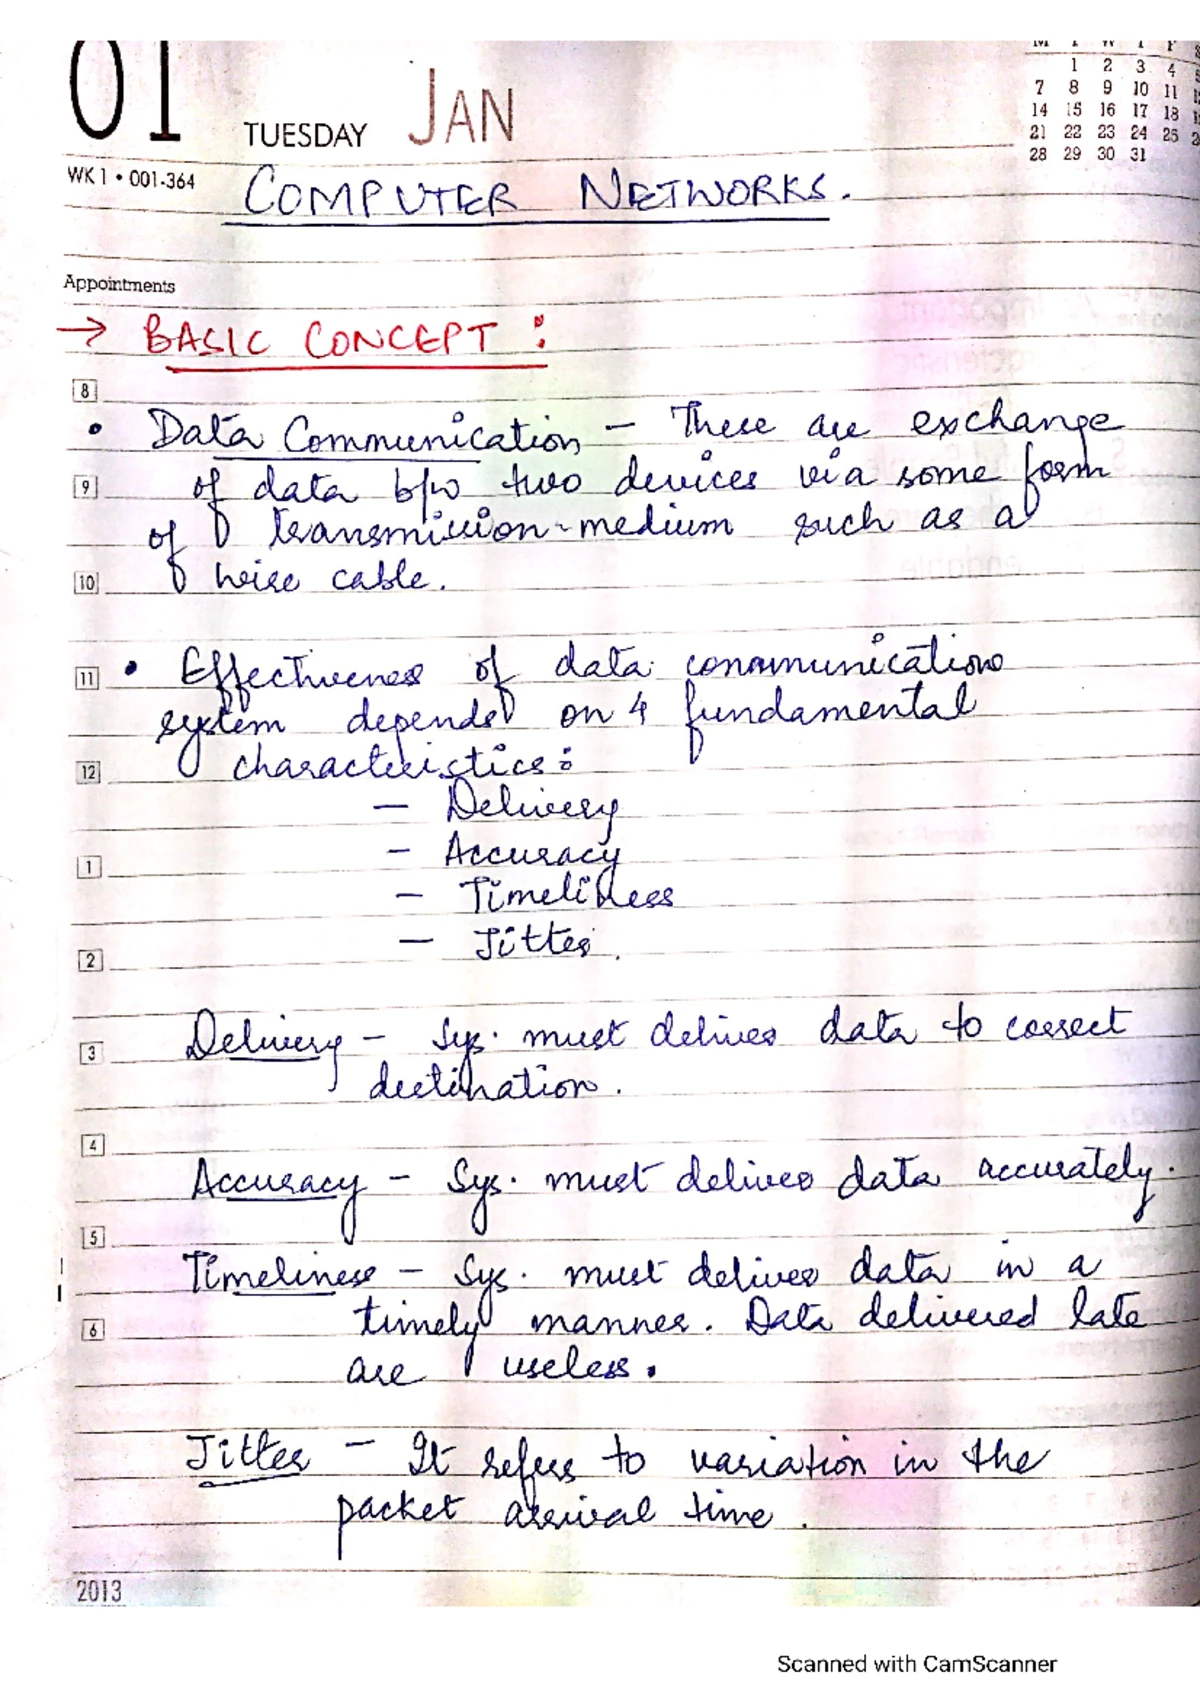 01 TUESDAY JAN
M T W T F S
1 2 3 4
7 8 9 10 11
14 15 16 17 18
21 22 23 24 25
28 29 30 31
WK 1 • 001-364
COMPUTER NETWORKS.
Appointments
→ BASIC CONCEPT :
8
• Data Communication – These are exchange
9 of data b/w two devices via some form
of transmission-medium such as a
10 wire cable.
11 • Effectiveness of data communications
system depends on 4 fundamental
12 characteristics:
– Delivery
1 – Accuracy
– Timeliness
2 – Jitter.
3 Delivery – Sys. must deliver data to correct
destination.
4
Accuracy – Sys. must deliver data accurately.
5
Timeliness – Sys. must deliver data in a
6 timely manner. Data delivered late
are useless.
Jitter – It refers to variation in the
packet arrival time.
2013
Scanned with CamScanner